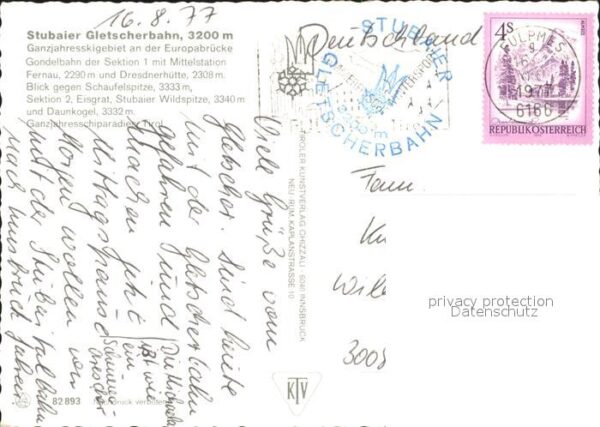 16.8.77
Stubaier Gletscherbahn, 3200 m
Ganzjahresskigebiet an der Europabrücke
Gondelbahn der Sektion 1 mit Mittelstation
Fernau, 2290 m und Dresdnerhütte, 2308 m.
Blick gegen Schaufelspitze, 3333 m,
Sektion 2, Eisgrat, Stubaier Wildspitze, 3340 m
und Daunkogel, 3332 m.
Ganzjahresschiparadies Tirol
Deutschland
STUBAIER
GLETSCHERBAHN
3200 m
4 S
FULPMES
1977
6166
REPUBLIK ÖSTERREICH
Viele Grüße vom
Gletscher. Sind heute
mit der Gletscherbahn
gefahren und
machen jetzt
Mittagspause
Morgen wollen wir
mit der Stubaitalbahn
nach Innsbruck fahren
Die Milch
ist wie
ein
TIROLER KUNSTVERLAG CHIZZALI · 6040 INNSBRUCK
NEU RUM, KAPLANSTRASSE 10
Fam.
300
privacy protection
Datenschutz
KTV
82893 Nachdruck verboten